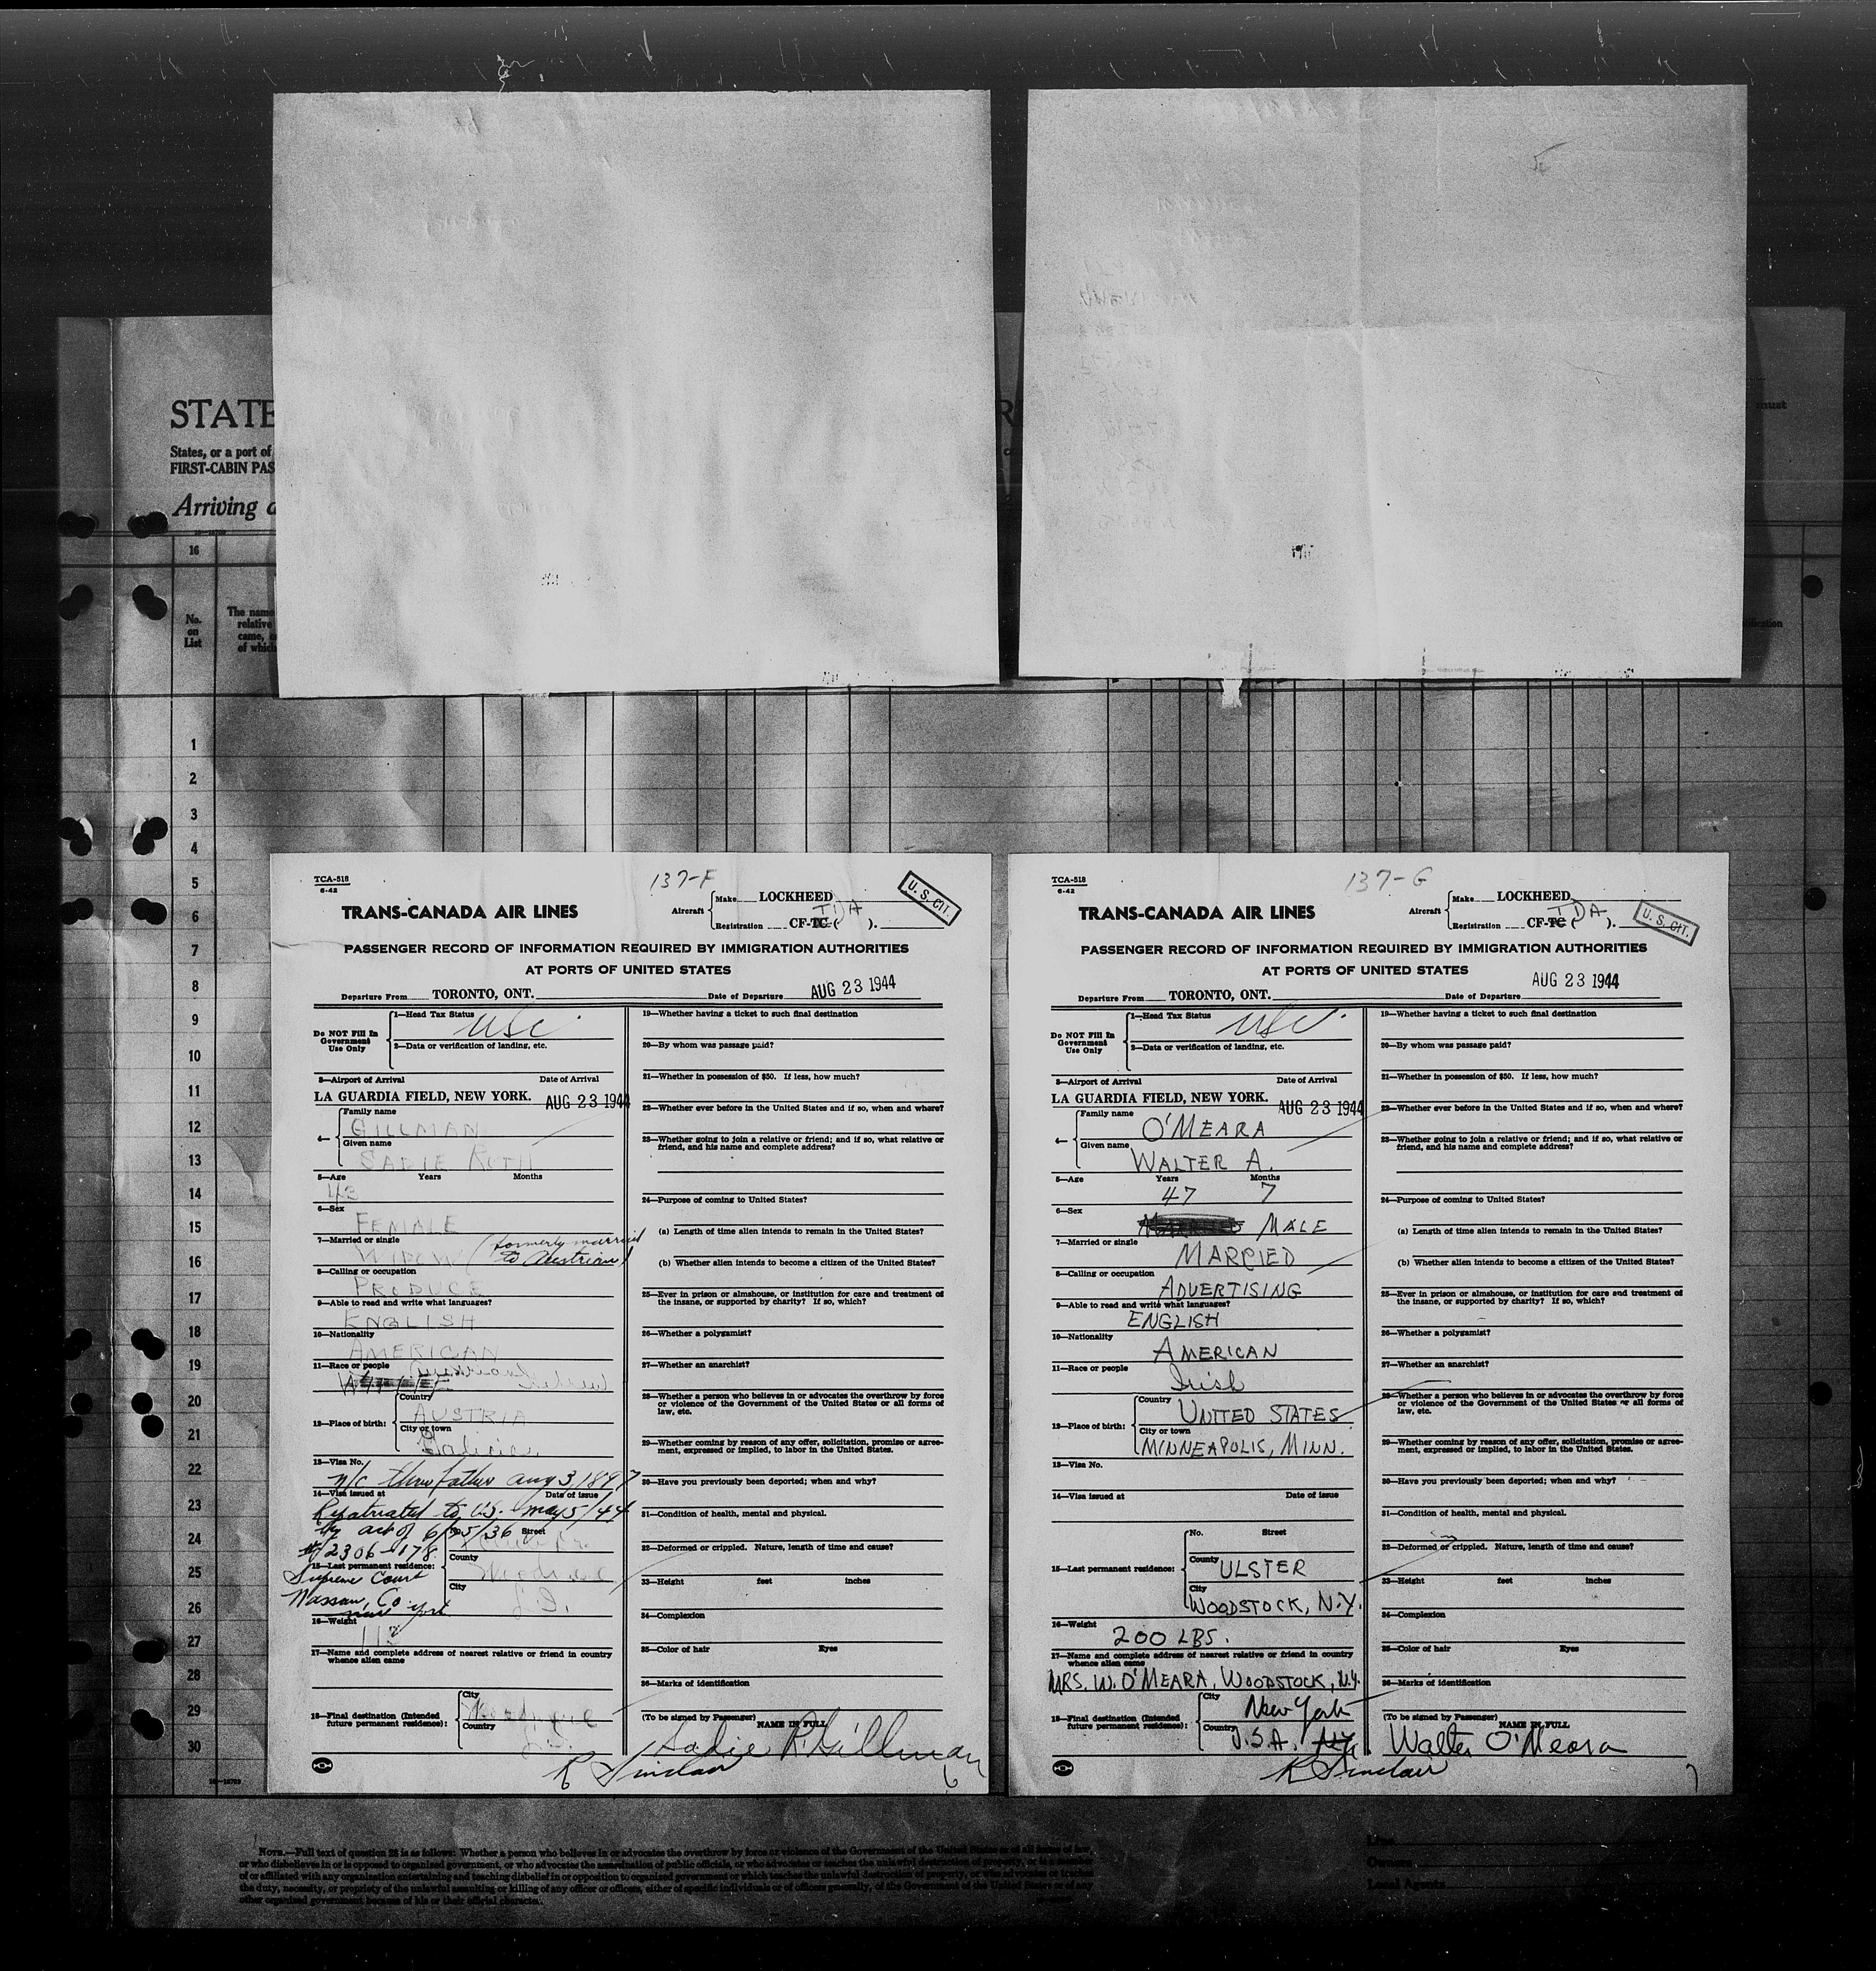 STATE
States, or a port of
FIRST-CABIN PAS
Arriving a
must
16
No.
on
List
The name
relative
came,
of which
1
2
3
4
5
6
7
8
9
10
11
12
13
14
15
16
17
18
19
20
21
22
23
24
25
26
27
28
29
30
TCA-518
6-42
137-F
TRANS-CANADA AIR LINES
Aircraft
Make LOCKHEED
Registration CF-TC ( TDA ).
U. S. CIT.
PASSENGER RECORD OF INFORMATION REQUIRED BY IMMIGRATION AUTHORITIES
AT PORTS OF UNITED STATES
Departure From TORONTO, ONT. Date of Departure AUG 23 1944
Do NOT Fill In
Government
Use Only
1—Head Tax Status
USC.
2—Data or verification of landing, etc.
3—Airport of Arrival Date of Arrival
LA GUARDIA FIELD, NEW YORK. AUG 23 1944
4—
Family name
GILLMAN
Given name
SADIE RUTH
5—Age Years Months
43
6—Sex
FEMALE
7—Married or single
WIDOW (formerly married
to Austrian)
8—Calling or occupation
PRODUCE
9—Able to read and write what languages?
ENGLISH
10—Nationality
AMERICAN
11—Race or people
Austrian
Hebrew
12—Place of birth:
Country
AUSTRIA
City or town
Galicia
13—Visa No.
n/c thru father Aug 3, 1897
14—Visa issued at Date of issue
Repatriated to U.S. May 5/44
by act of 6/25/36
No. Street
#2306-178
15—Last permanent residence:
County
Supreme Court
City
Nassau, Co.
L.I.
New York
16—Weight
113
17—Name and complete address of nearest relative or friend in country
whence alien came
18—Final destination (Intended
future permanent residence):
City
Woodmere
Country
L.I.
19—Whether having a ticket to such final destination
20—By whom was passage paid?
21—Whether in possession of $50. If less, how much?
22—Whether ever before in the United States and if so, when and where?
23—Whether going to join a relative or friend; and if so, what relative or
friend, and his name and complete address?
24—Purpose of coming to United States?
(a) Length of time alien intends to remain in the United States?
(b) Whether alien intends to become a citizen of the United States?
25—Ever in prison or almshouse, or institution for care and treatment of
the insane, or supported by charity? If so, which?
26—Whether a polygamist?
27—Whether an anarchist?
28—Whether a person who believes in or advocates the overthrow by force
or violence of the Government of the United States or all forms of
law, etc.
29—Whether coming by reason of any offer, solicitation, promise or agree-
ment, expressed or implied, to labor in the United States.
30—Have you previously been deported; when and why?
31—Condition of health, mental and physical.
32—Deformed or crippled. Nature, length of time and cause?
33—Height feet inches
34—Complexion
35—Color of hair Eyes
36—Marks of identification
(To be signed by Passenger)
NAME IN FULL
Sadie R Gillman
R Sinclair
6
TCA-518
6-42
137-G
TRANS-CANADA AIR LINES
Aircraft
Make LOCKHEED
Registration CF-TC ( TDA ).
U. S. CIT.
PASSENGER RECORD OF INFORMATION REQUIRED BY IMMIGRATION AUTHORITIES
AT PORTS OF UNITED STATES
Departure From TORONTO, ONT. Date of Departure AUG 23 1944
Do NOT Fill In
Government
Use Only
1—Head Tax Status
USC.
2—Data or verification of landing, etc.
3—Airport of Arrival Date of Arrival
LA GUARDIA FIELD, NEW YORK. AUG 23 1944
4—
Family name
O'MEARA
Given name
WALTER A.
5—Age Years Months
47 7
6—Sex
MALE
7—Married or single
MARRIED
8—Calling or occupation
ADVERTISING
9—Able to read and write what languages?
ENGLISH
10—Nationality
AMERICAN
11—Race or people
Irish
12—Place of birth:
Country
UNITED STATES
City or town
MINNEAPOLIS, MINN.
13—Visa No.
14—Visa issued at Date of issue
No. Street
15—Last permanent residence:
County
ULSTER
City
WOODSTOCK, N.Y.
16—Weight
200 LBS.
17—Name and complete address of nearest relative or friend in country
whence alien came
MRS. W. O'MEARA, WOODSTOCK, N.Y.
18—Final destination (Intended
future permanent residence):
City
New York
Country
U.S.A.
19—Whether having a ticket to such final destination
20—By whom was passage paid?
21—Whether in possession of $50. If less, how much?
22—Whether ever before in the United States and if so, when and where?
23—Whether going to join a relative or friend; and if so, what relative or
friend, and his name and complete address?
24—Purpose of coming to United States?
(a) Length of time alien intends to remain in the United States?
(b) Whether alien intends to become a citizen of the United States?
25—Ever in prison or almshouse, or institution for care and treatment of
the insane, or supported by charity? If so, which?
26—Whether a polygamist?
27—Whether an anarchist?
28—Whether a person who believes in or advocates the overthrow by force
or violence of the Government of the United States or all forms of
law, etc.
29—Whether coming by reason of any offer, solicitation, promise or agree-
ment, expressed or implied, to labor in the United States.
30—Have you previously been deported; when and why?
31—Condition of health, mental and physical.
32—Deformed or crippled. Nature, length of time and cause?
33—Height feet inches
34—Complexion
35—Color of hair Eyes
36—Marks of identification
(To be signed by Passenger)
NAME IN FULL
Walter O'Meara
R Sinclair
7
NOTE.—Full text of question 28 is as follows: Whether a person who believes in or advocates the overthrow by force or violence of the Government of the United States or of all forms of law,
or who disbelieves in or is opposed to organized government, or who advocates the assassination of public officials, or who advocates or teaches the unlawful destruction of property, or is a member
of or affiliated with any organization entertaining and teaching disbelief in or opposition to organized government or which teaches the unlawful destruction of property, or who advocates or teaches
the duty, necessity, or propriety of the unlawful assaulting or killing of any officer or officers, either of specific individuals or of officers generally, of the Government of the United States or of any
other organized government because of his or their official character.
Line
Owners
Local Agents